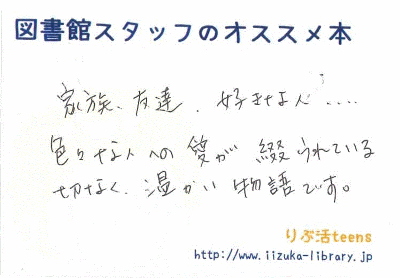 図書館スタッフのオススメ本
家族、友達、好きな人‥‥
色々な人への愛が綴られている
切なく、温かい物語です。
りぶ活teens
http://www.iizuka-library.jp